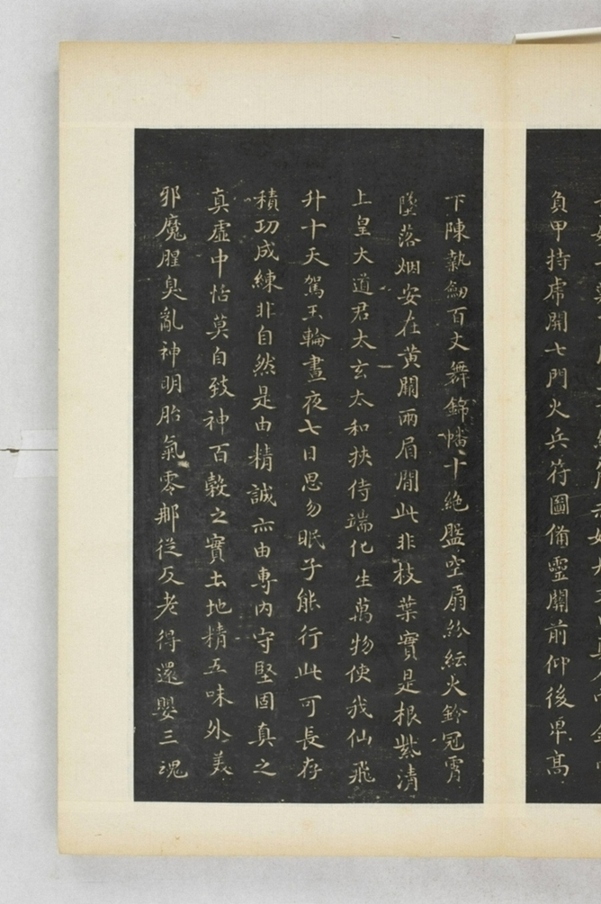 負甲持虎開七門火兵符圖備靈關前仰後卑高
下陳執劔百丈舞錦幡十絶盤空扇紛紜火鈴冠霄
墜落烟安在黄闕兩眉間此非枝葉實是根紫清
上皇大道君太玄太和挾侍端化生萬物使我仙飛
升十天駕玉輪晝夜七日思勿眠子能行此可長存
積功成練非自然是由精誠亦由專内守堅固真之
真虚中恬莫自致神百穀之實土地精五味外美
邪魔腥臭亂神明胎氣零那從反老得還嬰三魂